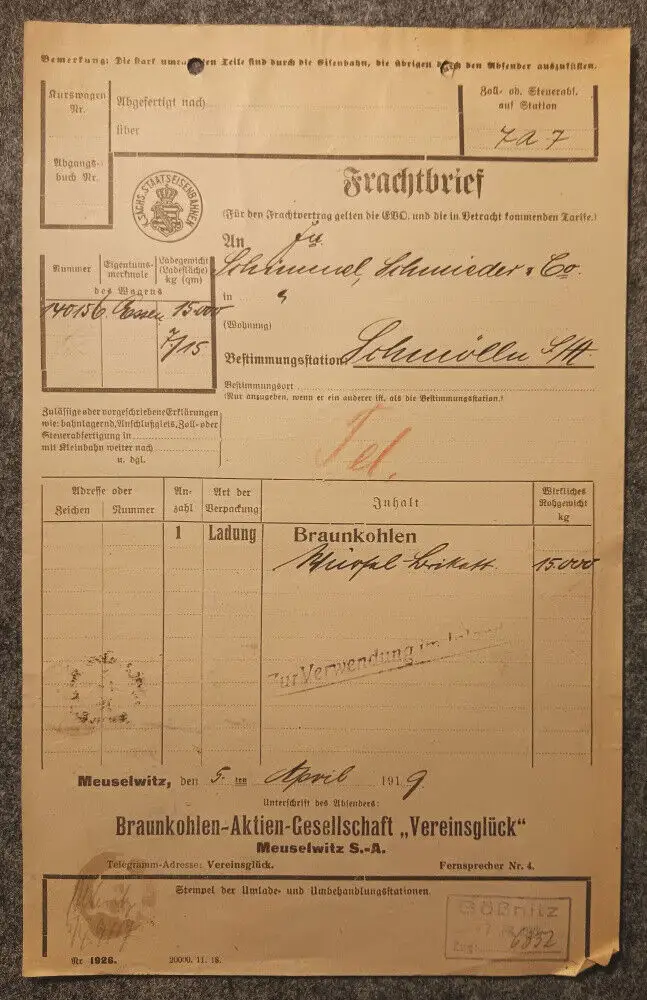 Bemerkung: Die stark umrahmten Teile sind durch die Eisenbahn, die übrigen durch den Absender auszufüllen.
Kurswagen Nr.
Abgefertigt nach
über
Zoll- od. Steuerabf. auf Station
7 a 7
Abgangsbuch Nr.
K. SÄCHS. STAATSEISENBAHNEN
Frachtbrief
(Für den Frachtvertrag gelten die EVO. und die in Betracht kommenden Tarife.)
An
Schimmel, Schmieder & Co.
in "
(Wohnung)
Bestimmungsstation: Schmölln S/A
Bestimmungsort
(Nur anzugeben, wenn er ein anderer ist, als die Bestimmungsstation.)
Nummer Eigentumsmerkmale Ladegewicht (Ladefläche) kg (qm)
des Wagens
140156 Essen 15000
7/15
Zulässige oder vorgeschriebene Erklärungen
wie: bahnlagernd, Anschlußgleis, Zoll- oder
Steuerabfertigung in
mit Kleinbahn weiter nach
u. dgl.
Tel.
Adresse oder
Zeichen Nummer
Anzahl
Art der Verpackung
Inhalt
Wirkliches Rohgewicht kg
1 Ladung Braunkohlen
Würfel Brikett 15.000
Zur Verwendung im
Meuselwitz, den 5. ten April 1919
Unterschrift des Absenders:
Braunkohlen-Aktien-Gesellschaft „Vereinsglück“
Meuselwitz S.-A.
Telegramm-Adresse: Vereinsglück. Fernsprecher Nr. 4.
Stempel der Umlade- und Umbehandlungsstationen.
Gößnitz
6832
Nr 1926. 20000. 11. 18.